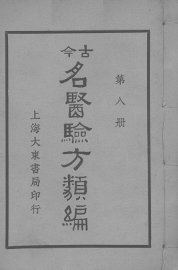 第八册
古今
名醫驗方類編
上海大東書局印行